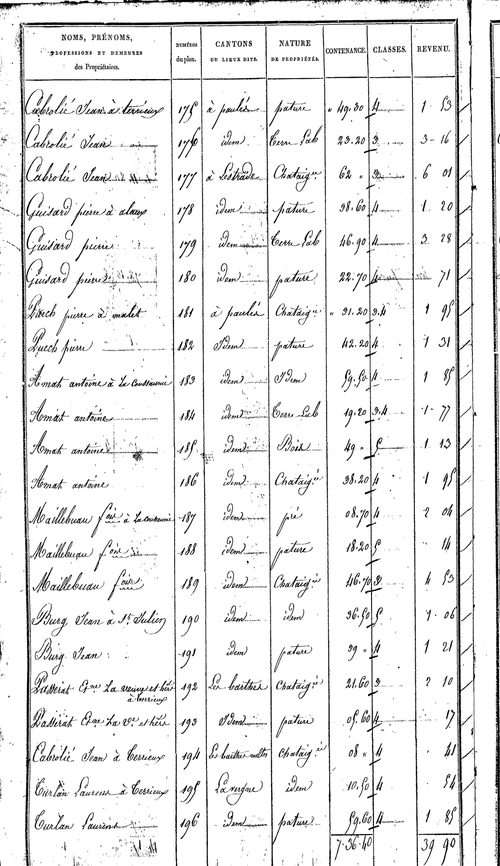 NOMS, PRÉNOMS, PROFESSIONS ET DEMEURES des Propriétaires. | NUMÉROS du plan. | CANTONS OU LIEUX DITS. | NATURE DE PROPRIÉTÉS. | CONTENANCE. | CLASSES. | REVENU.
Cabrolié Jean à terrieux 175 à paulés pature " 49.30 4 1 53
Cabrolié Jean 176 idem Terre Lab 23.20 3 3-16
Cabrolié Jean 177 à Lestrade Chataigie 62 " 3 6 01
Guisard pierre à alaux 178 idem pature 38.60 4 1 20
Guisard pierre 179 idem Terre Lab 46.90 4 3 28
Guisard pierre 180 idem pature 22.70 4 71
Puech pierre à malet 181 à paulés Chataigie " 31.20 3.4 1 95
Puech pierre 182 Idem pature 42.20 4 1 31
Amat antoine à La 183 idem Idem 59.50 4 1 85
Amat antoine 184 idem Terre Lab 19-20 3.4 1-77
Amat antoine 185 idem Bois 49 " 5 1 13
Amat antoine 186 idem Chataigie 38.20 4 1 95
Maillebuau fois à La 187 idem pré 08.70 4 2 04
Maillebuau fois 188 idem pature 18.20 5 14
Maillebuau fois 189 idem Chataigie 46.70 3 4 53
Burg Jean à St Julien 190 idem idem 36.50 5 1-06
Burg Jean 191 idem pature 39 " 4 1 21
Passerat Etne La veuve et hérs à terrieux 192 Les baithes Chataigie 21.60 3 2 10
Passerat Etne La Vve et hérs 193 Idem pature 05.60 4 17
Cabrolié Jean à Terrieux 194 Chataigie 08 " 4 41
Turlan Laurens à Terrieux 195 La vergne idem 10.50 4 54
Turlan Laurens 196 idem pature 59.60 4 1 85
7-36-40 39 90